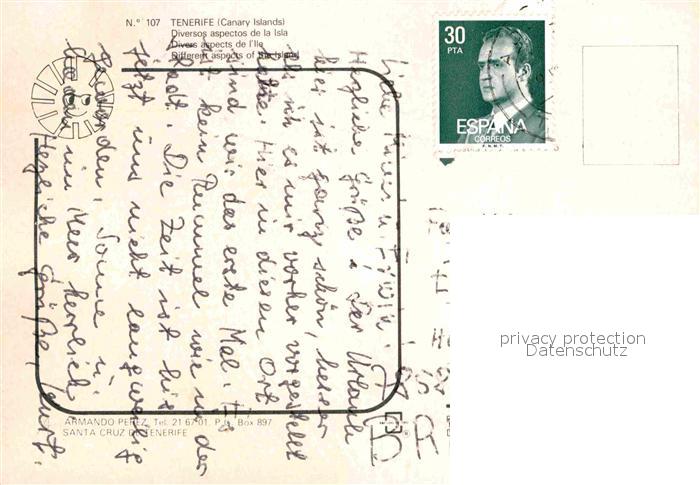 N.º 107 TENERIFE (Canary Islands)
Diversos aspectos de la Isla
Divers aspects de l'Ile
Different aspects of the Island
30
PTA
ESPAÑA
CORREOS
F.N.M.T.
Liebe u. Erwin.
Herzliche Grüße. Der Urlaub
hier ist ganz schön, besser
als ich es mir vorher vorgestellt
hatte. Hier in diesen Ort
sind wir das erste Mal. Es
ist kein Rummel wie in der
Stadt. Die Zeit ist bis
jetzt uns nicht langweilig
geworden. Sonne u.
Baden im Meer herrlich
Herzliche Grüße,
ARMANDO PEREZ, Tel. 21 67 01. P.O. Box 897
SANTA CRUZ DE TENERIFE
privacy protection
Datenschutz